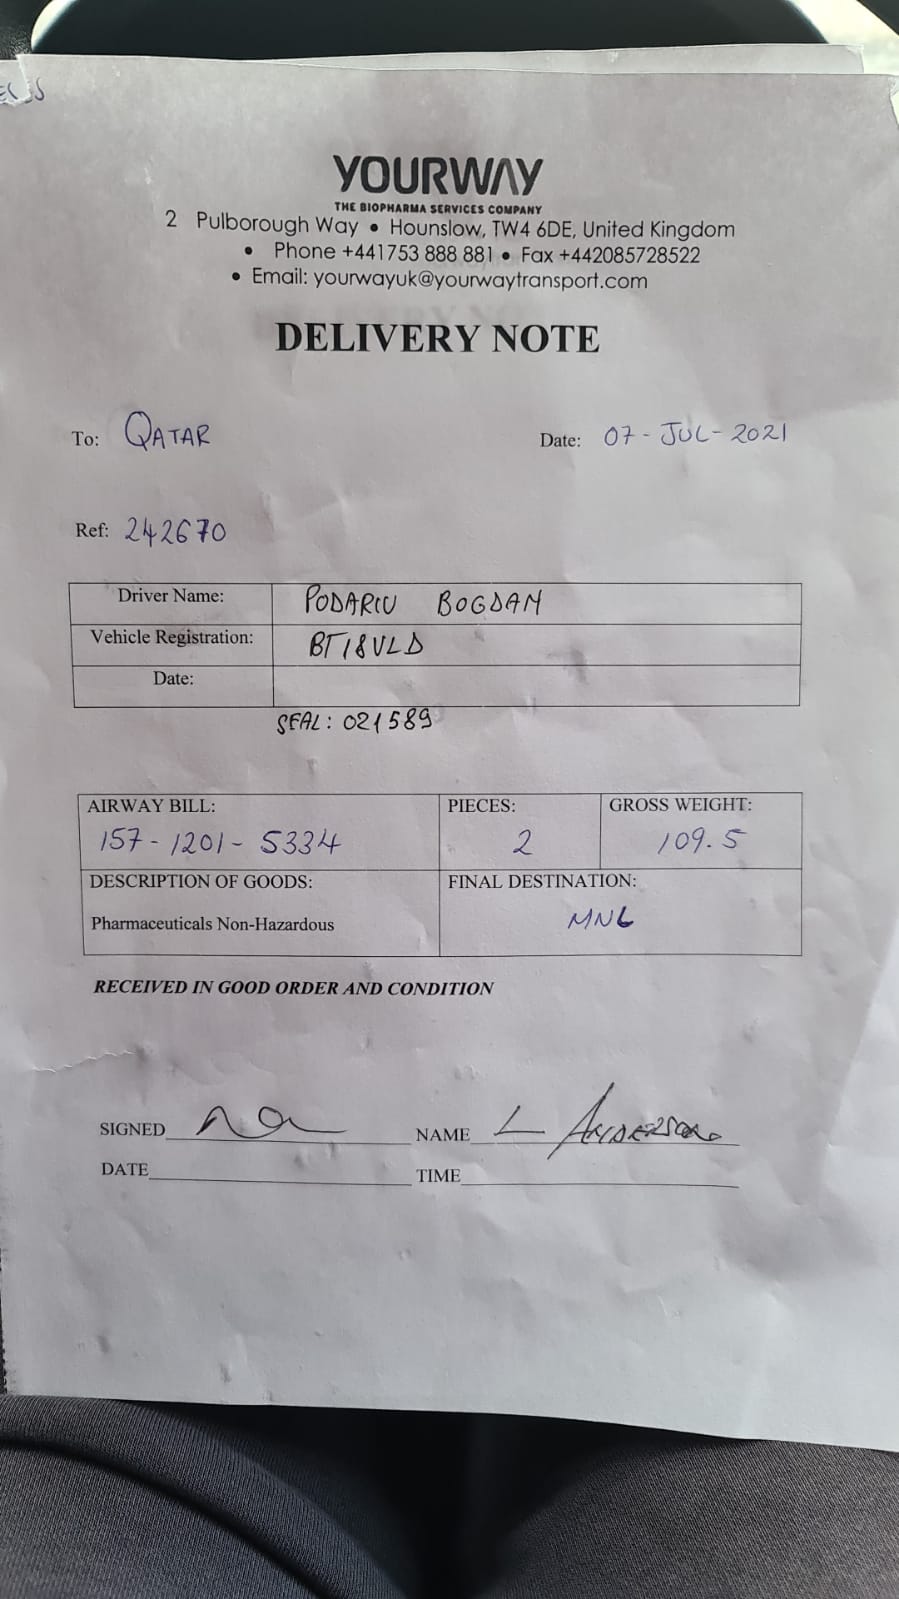 YOURWAY
THE BIOPHARMA SERVICES COMPANY
2 Pulborough Way • Hounslow, TW4 6DE, United Kingdom
• Phone +441753 888 881 • Fax +442085728522
• Email: yourwayuk@yourwaytransport.com
DELIVERY NOTE
To: QATAR Date: 07-JUL-2021
Ref: 242670
Driver Name: PODARIU BOGDAN
Vehicle Registration: BT18VLD
Date:
SEAL: 021589
AIRWAY BILL: PIECES: GROSS WEIGHT:
157-1201-5334 2 109.5
DESCRIPTION OF GOODS: FINAL DESTINATION:
Pharmaceuticals Non-Hazardous MNL
RECEIVED IN GOOD ORDER AND CONDITION
SIGNED NAME L ANDERSON
DATE TIME